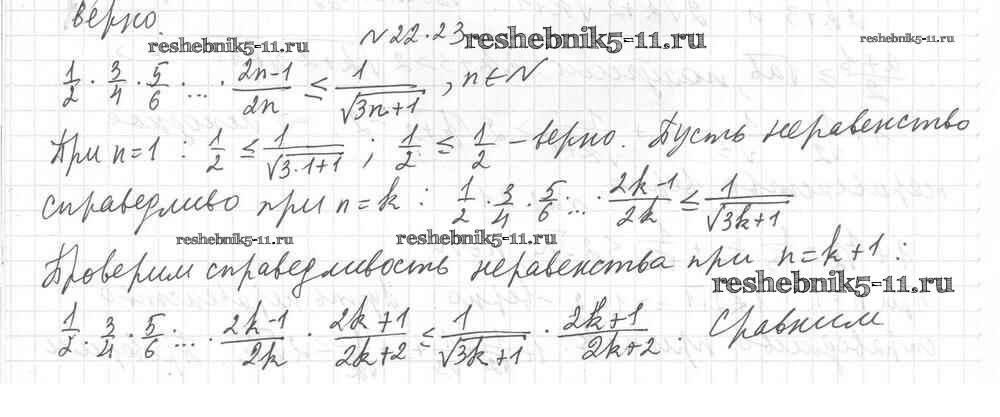 верно.
reshebnik5-11.ru №22.23 reshebnik5-11.ru
1/2 · 3/4 · 5/6 · ... · (2n-1)/2n ≤ 1/√(3n+1), n ∈ N
При n=1 : 1/2 ≤ 1/√(3·1+1) ; 1/2 ≤ 1/2 – верно. Пусть неравенство
справедливо при n=k : 1/2 · 3/4 · 5/6 ... · (2k-1)/2k ≤ 1/√(3k+1)
reshebnik5-11.ru reshebnik5-11.ru
Проверим справедливость неравенства при n=k+1 :
reshebnik5-11.ru
1/2 · 3/4 · 5/6 · ... · (2k-1)/2k · (2k+1)/(2k+2) ≤ 1/√(3k+1) · (2k+1)/(2k+2) . Сравним